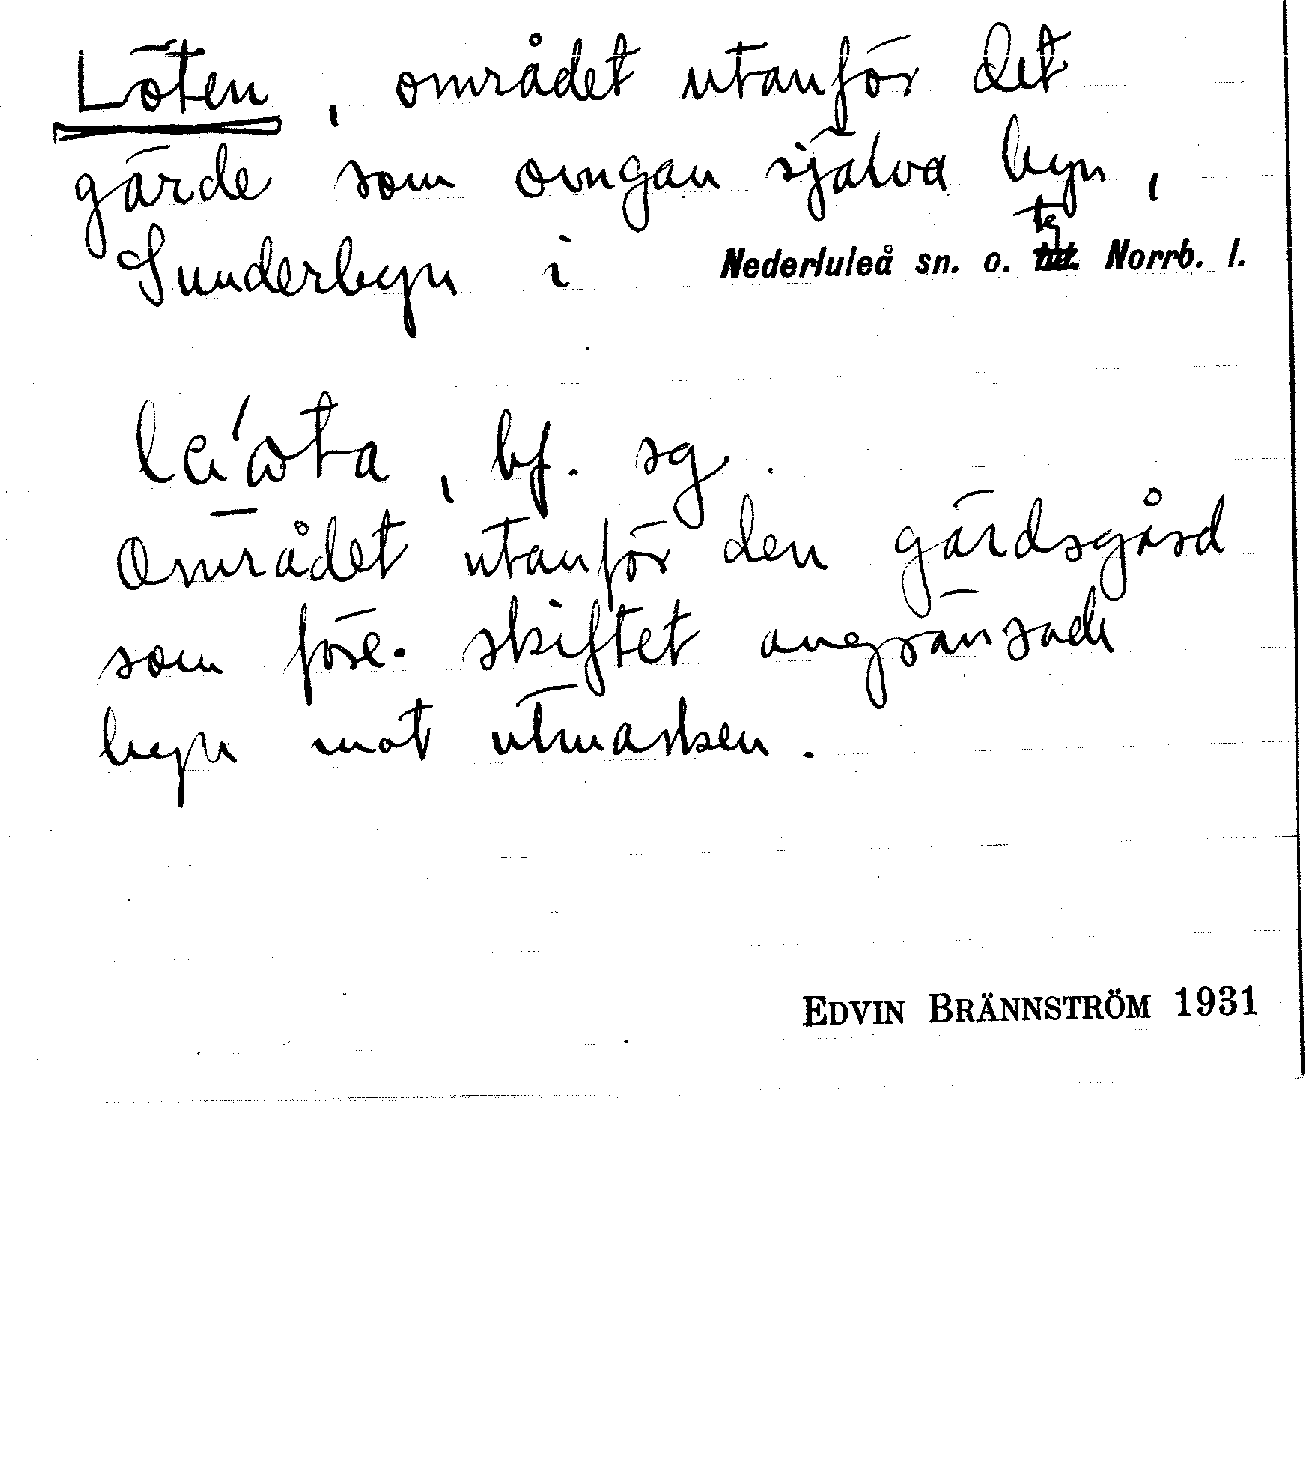 Löten, området utanför det
gärde som omgav själva byn,
Sunderbyn i Nederluleå sn. o. tg Norrb. l.
bf. sg.
området utanför den gärdsgård
som före skiftet angränsade
byn mot utmarken.
EDVIN BRÄNNSTRÖM 1931